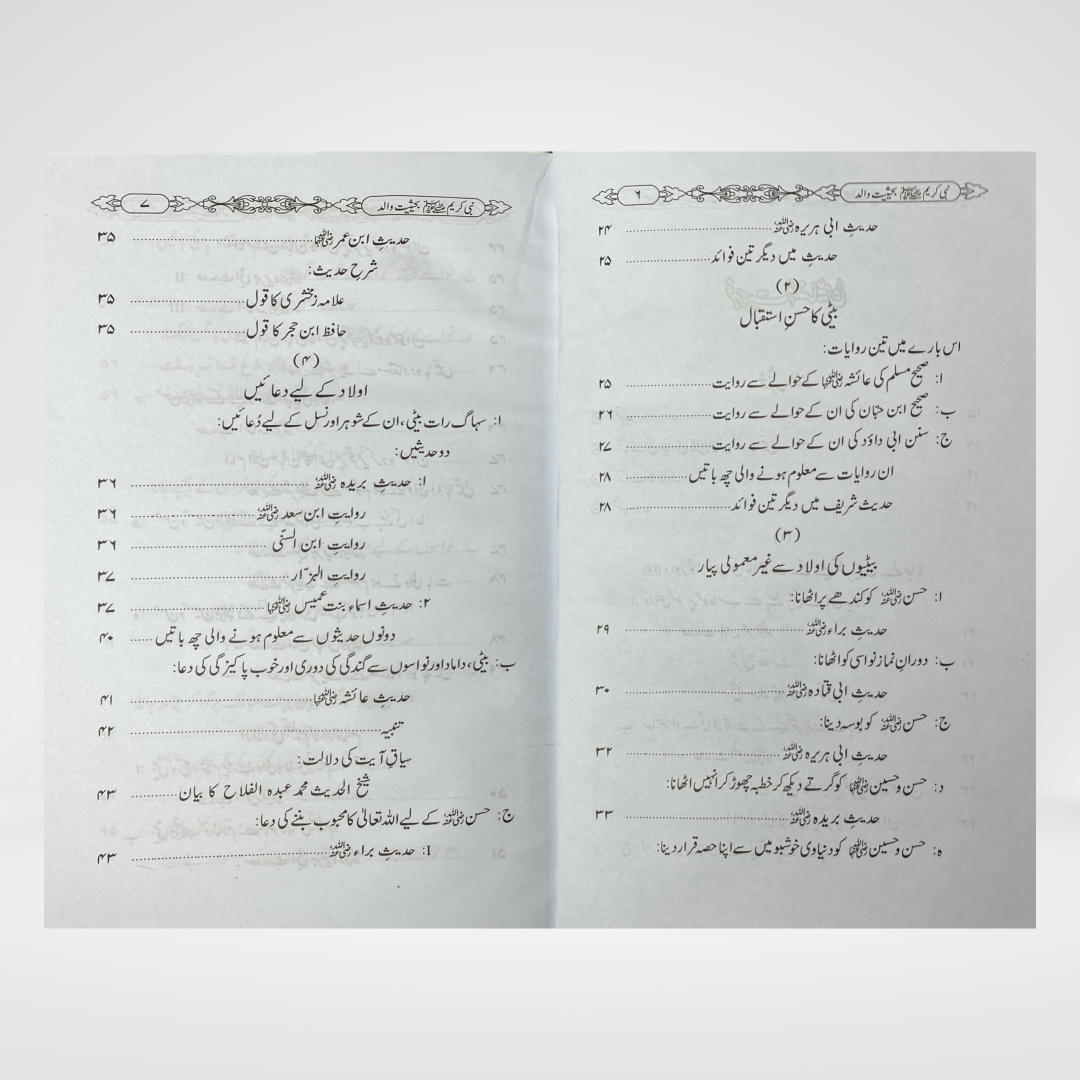 نبی کریم ﷺ بحیثیت والد ۶
حدیثِ ابی ہریرہ رضی اللہ عنہ ........ ۲۴
حدیث میں دیگر تین فوائد ........ ۲۵
(۲)
بیٹی کا حسنِ استقبال
اس بارے میں تین روایات:
ا: صحیح مسلم کی عائشہ رضی اللہ عنہا کے حوالے سے روایت ........ ۲۵
ب: صحیح ابن حبّان کی ان کے حوالے سے روایت ........ ۲۶
ج: سنن ابی داؤد کی ان کے حوالے سے روایت ........ ۲۷
ان روایات سے معلوم ہونے والی چھ باتیں ........ ۲۸
حدیث شریف میں دیگر تین فوائد ........ ۲۸
(۳)
بیٹیوں کی اولاد سے غیر معمولی پیار
ا: حسن رضی اللہ عنہ کو کندھے پر اٹھانا:
حدیثِ براء رضی اللہ عنہ ........ ۲۹
ب: دورانِ نماز نواسی کو اٹھانا:
حدیثِ ابی قتادہ رضی اللہ عنہ ........ ۳۰
ج: حسن رضی اللہ عنہ کو بوسہ دینا:
حدیثِ ابی ہریرہ رضی اللہ عنہ ........ ۳۲
د: حسن و حسین رضی اللہ عنہما کو گرتے دیکھ کر خطبہ چھوڑ کر انہیں اٹھانا:
حدیثِ بریدہ رضی اللہ عنہ ........ ۳۳
ہ: حسن و حسین رضی اللہ عنہما کو دنیاوی خوشبو میں سے اپنا حصہ قرار دینا:
نبی کریم ﷺ بحیثیت والد ۷
حدیثِ ابن عمر رضی اللہ عنہما ........ ۳۵
شرحِ حدیث:
علامہ زمخشری کا قول ........ ۳۵
حافظ ابن حجر کا قول ........ ۳۵
(۴)
اولاد کے لیے دعائیں
ا: سہاگ رات بیٹی، ان کے شوہر اور نسل کے لیے دُعائیں:
دو حدیثیں:
۱: حدیثِ بریدہ رضی اللہ عنہ ........ ۳۶
روایتِ ابن سعد رضی اللہ عنہ ........ ۳۶
روایتِ ابن السنّی ........ ۳۶
روایتِ البزّار ........ ۳۷
۲: حدیثِ اسماء بنت عمیس رضی اللہ عنہا ........ ۳۷
دونوں حدیثوں سے معلوم ہونے والی چھ باتیں ...... ۴۰
ب: بیٹی، داماد اور نواسوں سے گندگی کی دوری اور خوب پاکیزگی کی دعا:
حدیثِ عائشہ رضی اللہ عنہا ........ ۴۱
تنبیہ ........ ۴۲
سیاقِ آیت کی دلالت:
شیخ الحدیث محمد عبدہ الفلاح کا بیان ........ ۴۳
ج: حسن رضی اللہ عنہ کے لیے اللہ تعالیٰ کا محبوب بننے کی دعا:
I: حدیثِ براء رضی اللہ عنہ ........ ۴۳